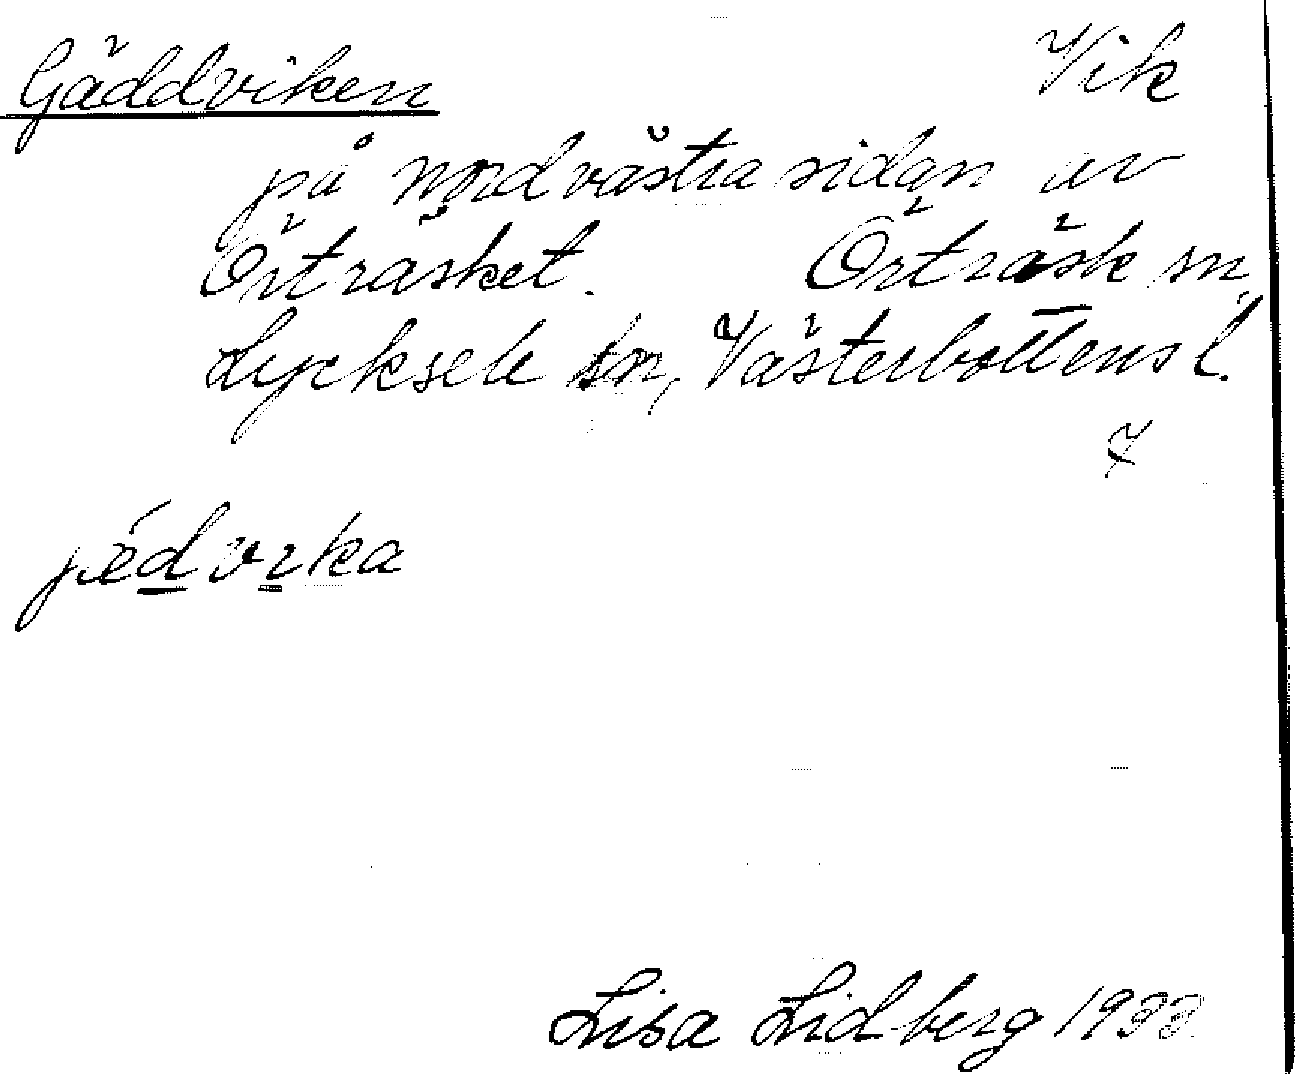 Gäddviken Vik
på nordvästra sidan av
Örträsket. Örträsk sn,
Lycksele tsn, Västerbottens l.
7
jédvıka
Lisa Lidberg 1933